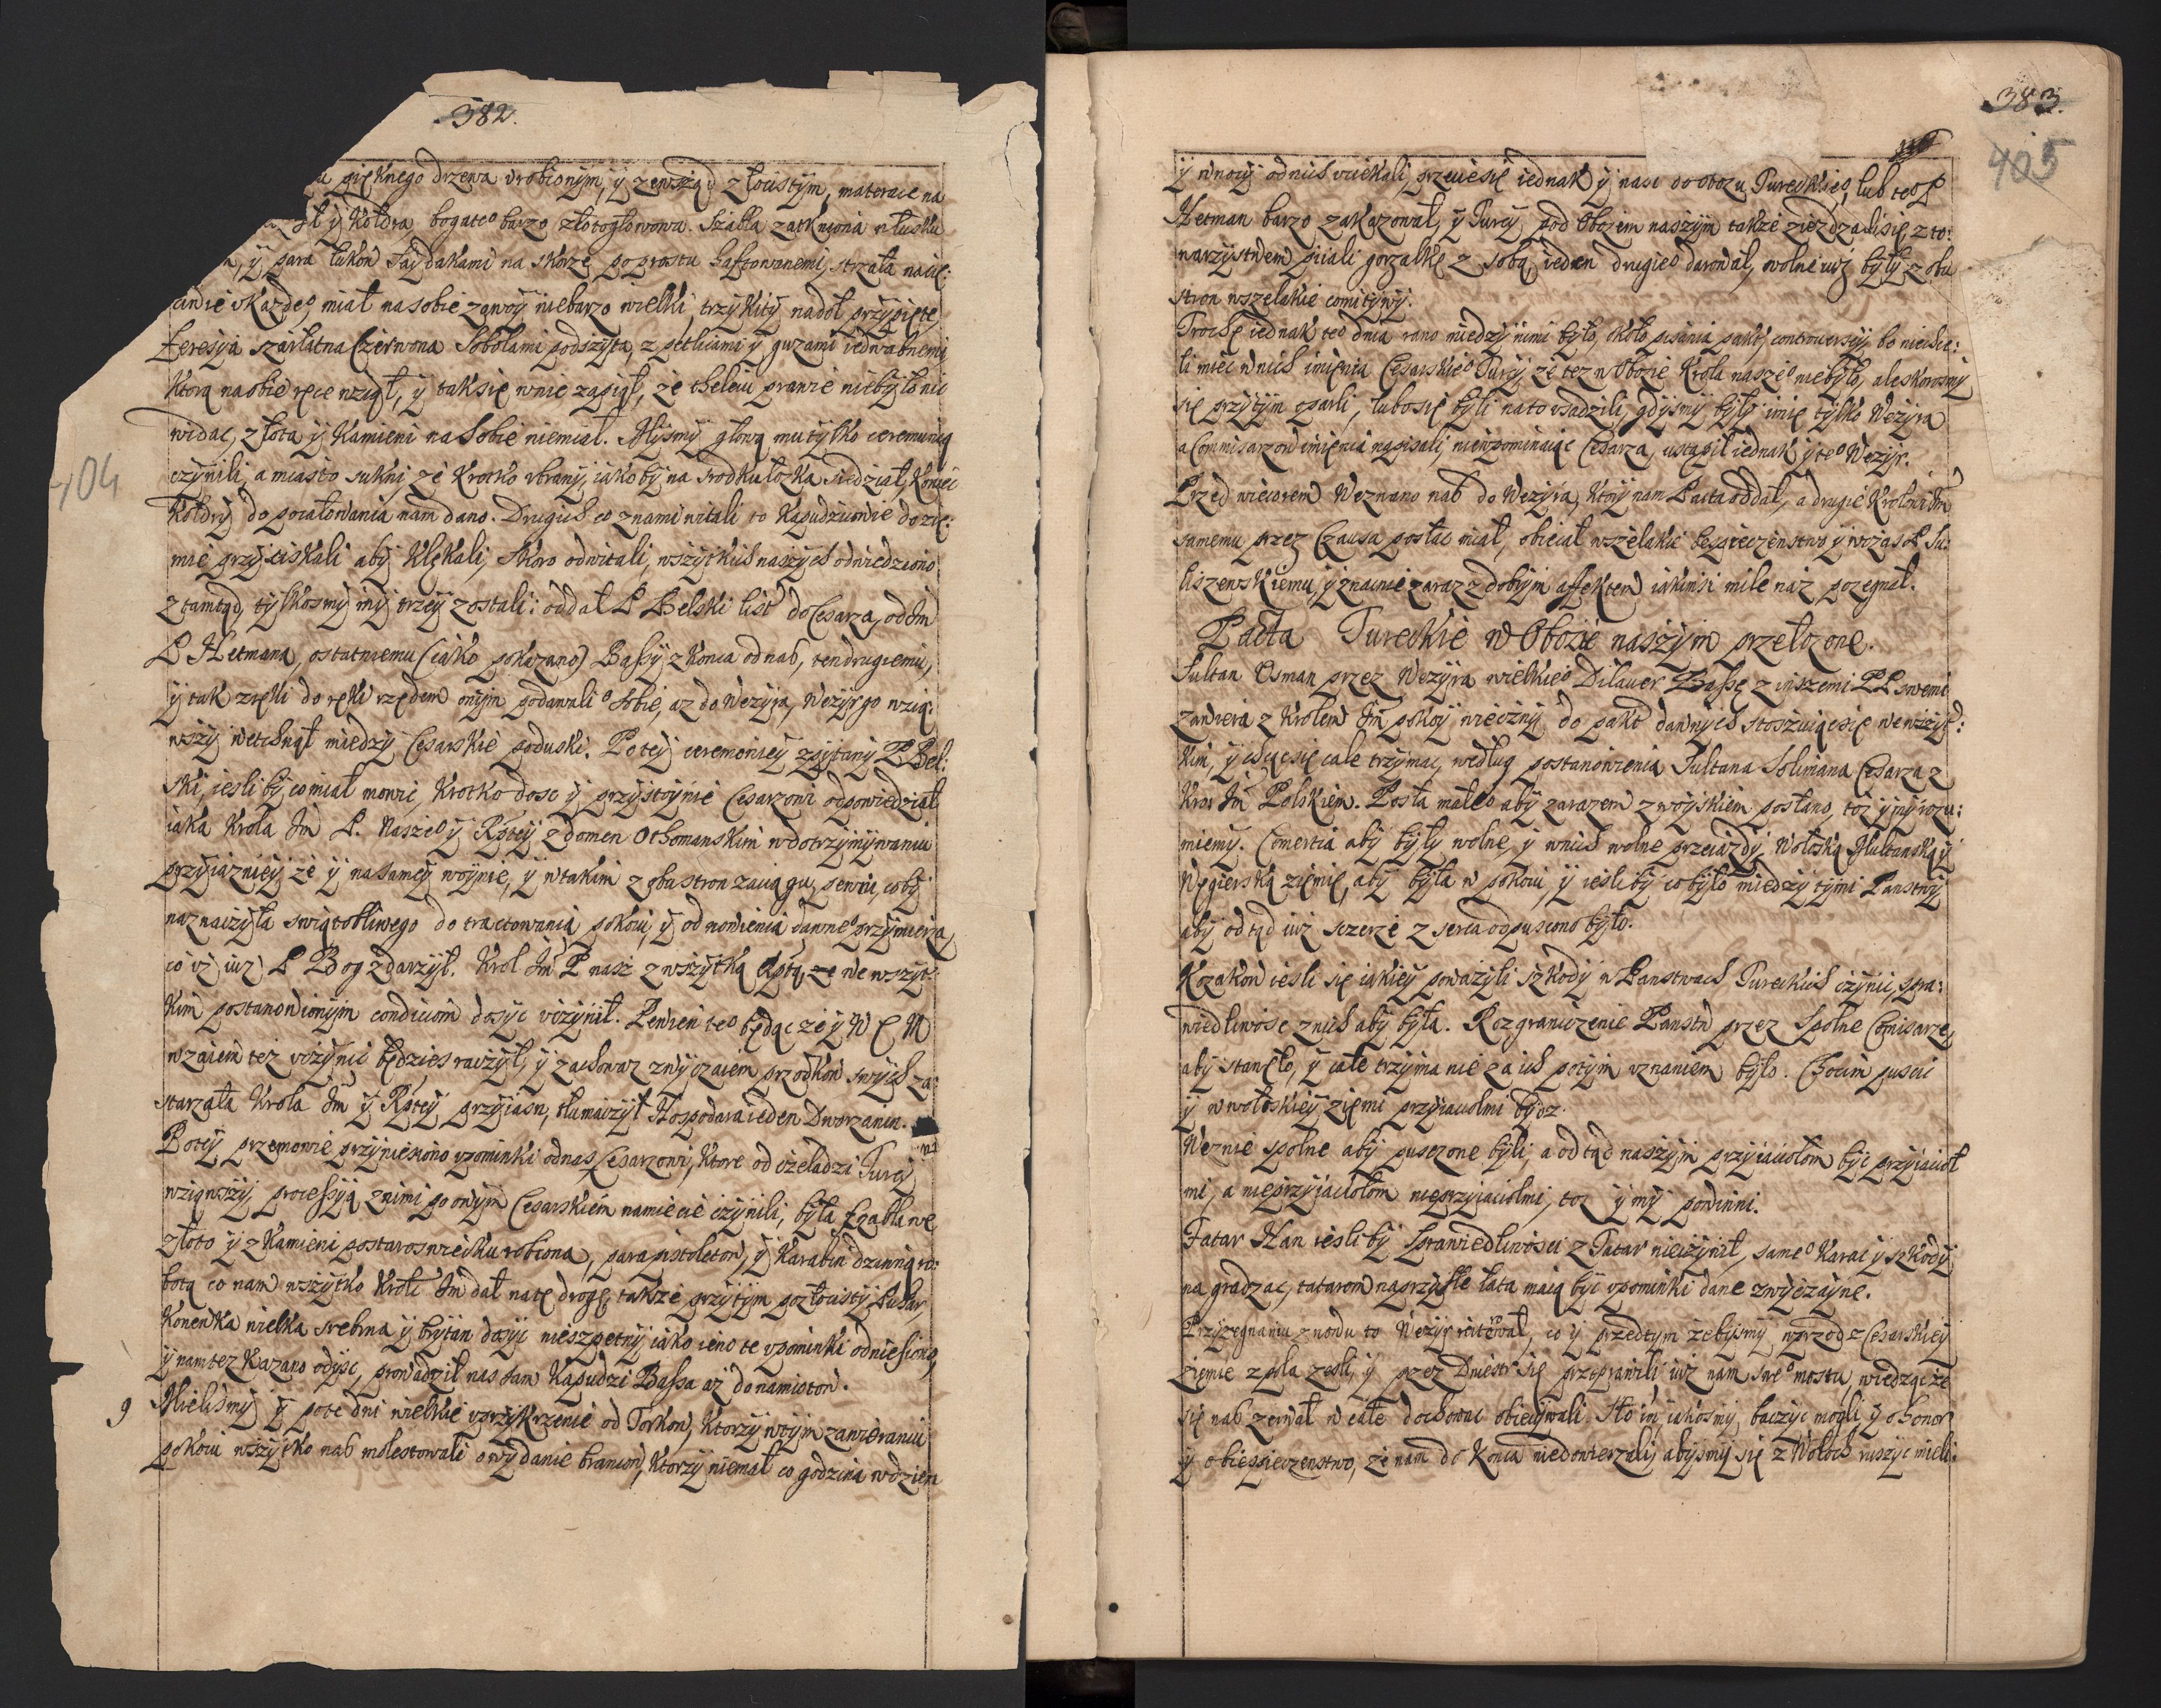 382.
pięknego drzewa vrobionym, ÿ zewsząd złocistÿm, materace na
ÿ Kołdra, bogate⁰ barzo złotogłowowa. Szabla zatkniona w łusku
ÿ para łukow Saÿdakami na skorze poprostu haftowanemi, strzała nacię:
vkażde⁰, miał na sobie zawoÿ niebarzo wielki, trzÿ kitÿ nadoł przÿpięte,
feresÿa szarłatna Czerwona Sobolami podszÿta, z petlicami ÿ guzami iedwabnemi,
ktorą na obie ręce wziął, ÿ tak się wnie zapiął, że theletu prawie niebÿło nic
widac, złota ÿ Kamieni na Sobie niemiał. Mÿsmÿ głową mu tÿlko ceremunią
czÿnili, a miasto sukni, że krotko vbranÿ, iakobÿ na srodku łozka siedział, koniec
kołdrÿ do pocałowania nam dano. Drugich co znami witali to Kapudziowie do zie:
mie przÿciskali abÿ klękali, skoro odwitali, wszÿtkich naszÿch odwiedziono
ztamtąd, tÿlkosmÿ mÿ trzeÿ zostali: oddał P. Belski list do Cesarza, od Jm̃
P. Hetmana, ostatniemu (iako pokazano) Bassÿ z konca od nas, ten drugiemu,
ÿ tak z ręki do ręki rzędem onÿm podawali⁰ sobie, az do Wezÿra, Wezÿr go wzią:
wszÿ wetchnął miedzÿ Cesarskie poduski. Po teÿ ceremonieÿ zpÿtanÿ P. Bel:
ski, iesli bÿ co miał mowic, krotko dosc ÿ przÿstoÿnie Cesarzowi odpowiedział
iaka Krola Jm̃ P. Nasze⁰ ÿ Rpteÿ z domem Othomanskim w dotrzÿmÿwaniu
przÿiazniēÿ że ÿ na sameÿ woÿnie, ÿ w takim z obu stron zaciągu, sewiu, cobÿ
naznaczÿła swiątobliwego do tractowania pokoiu, ÿ od nowienia dawne⁰ przÿmierza,
co iż iuż P. Bog zdarzÿł. Krol Jm̃ P. nasz z wszÿtką Rptą, ~~ze~~ we wszÿt:
kim postanowionÿm condiciom dosÿc vczÿnił. Pewien te⁰ będąc że ÿ W C M
wzaiem też vczÿnic będzies raczÿł, ÿ zachowaz zwÿczaiem przodkow swÿch za:
starzała Krola Jm̃ ÿ Rpteÿ przÿiazn, tłumaczÿł Hospodara ieden Dworzanin.
Poteÿ przemowie przÿniesiono vpominki od nas Cesarzowi, ktore od czeladzi Turcÿ
wziąwszÿ, processÿą z nimi po onÿm Cesarskiem namiecie czÿnili, bÿła szabla we
złoto ÿ z Kamieni postaroswiecku robiona, para pistoletow, ÿ Karabin dziwną ro:
botą co nam wszÿtko Krolc Jm̃ dał natę drogę, takze przÿtÿm pozłocistÿ Puhar,
Konewka wielka srebrna ÿ brÿtan dosÿc nieszpetnÿ, iako ieno te vpominki odniesiono,
ÿ nam tez kazano odÿsc, prowadził nas sam Kapudzi Bassa aż do namiotow.
9 Mielismÿ ÿ pote dni wielkie vprzÿkrzenie od Torkow, ktorzÿ wtÿm zawieraniu
pokoiu wszÿtko nas molestowali o wÿdanie brancow, ktorzÿ niemal co godzina wdzien
404
383.
405
ÿ wnocÿ od nich vciekali, przeciesię iednak ÿ nasi do obozu Tureckie⁰, lub te⁰ P
Hetman barzo zakazował, ÿ Turcÿ pod Obozem naszÿm takze ziezdzali się, z to:
warzÿstwem, piiali gorzałkę z sobą, ieden drugie⁰ darował, wolne iuż bÿłÿ z obu
stron wszelakie comitÿwÿ.
Trochę iednak te⁰ dnia rano miedzÿ nimi bÿło, około pisania pakt, controwersiÿ, bo niechcie:
li miec w nich imienia Cesarskie⁰ Turcÿ, że tez w Obozie Krola nasze⁰ niebÿło, ale skorosmÿ
się przÿtÿm oparli, lubo się bÿli na to vsadzili, gdÿsmÿ bÿłÿ imie tÿlko Wezÿra
a Commisarzow imiona napisali, niewspominaiąc Cesarza, ustąpił iednak ÿ te⁰ Wezÿr.
Przed wieczorem Wezwano nas do Wezÿra, ktorÿ nam Pacta oddał, a drugie Krolowi Jm̃
samemu przez Czausa posłac miał, obiecał wszelakie bespieczenstwo ÿ wczas P. Su:
liszewskiemu, ÿ znacznie zaraz z dobrÿm affektem iakimsi mile naz pozegnał.
Pacta Tureckie w Obozie naszÿm przełozone.
Sultan Osman przez Wezÿra wielkie⁰ Dilawer Bassę z inszemi PP. swemi
zawiera z Krolem Jm̃ pokoÿ wiecznÿ do pakt dawnÿch stosuiącsię we wszÿt:
kim, ÿ chcącsię cale trzÿmac, według postanowienia Sultana Solimana Cesarza z
Krol Jm̃ Polskiem. Posła małe⁰ abÿ zarazem z woÿskiem posłano, toż ÿ mÿ rozu:
miemÿ. Comertia abÿ bÿłÿ wolne, ÿ wnich wolne przeiazdÿ. Wołoską Multanską ÿ
Węgierską ziemię, abÿ bÿła w pokoiu, ÿ iesli bÿ co bÿło miedzÿ tÿmi Panstwÿ,
abÿ od tąd iuż sczerze z serca odpusczono bÿło.
Kozakow iesli się iakieÿ poważÿli szkodÿ w Panstwach Tureckich czÿnic, spra:
wiedliwosc z nich abÿ bÿła. Rozgraniczenie Panstw przez Spolne Comisarze,
abÿ stanęło, ÿ całe trzÿmanie za ich potÿm vznaniem bÿło. Chocim puscic
ÿ w wołoskieÿ ziemi przÿiaciolmi bÿdz.
Wieznie spolne abÿ pusczone bÿli, a od tąd naszÿm przÿiaciołom bÿc przÿiaciol
mi, a nieprzÿiaciołom nieprzÿiaciolmi, toż ÿ mÿ powinni.
Tatar Han iesli bÿ sprawiedliwosci z Tatar nieczÿnił, same⁰ karac ÿ szkodÿ
nagradzac, tatarom naprzÿszłe lata maią bÿc vpominki dane zwÿczaÿne.
Przÿżegnaniu znowu to Wezÿr reiterował, co ÿ przedtÿm żebÿsmÿ wprzod z Cesarskieÿ
ziemie z pola zeszli, ÿ przez Dniestr się przeprawili iuż nam swe⁰ mostu, wiedząc że
się nas zerwał w całe dochowac obiecÿwali. Sło im iakosmÿ baczÿc mogli, ÿ o honor
ÿ o bespieczenstwo, że nam do konca niedowierzali, abÿsmÿ się z Wołoch ruszÿc mieli.